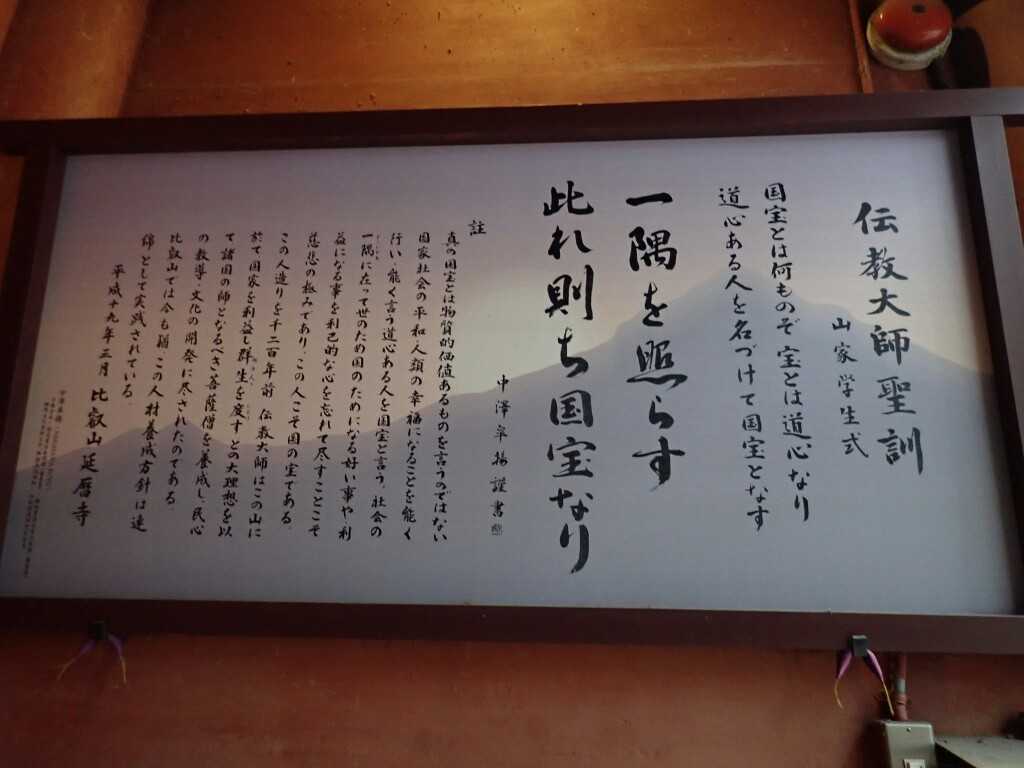 伝教大師聖訓
山家学生式
国宝とは何ものぞ 宝とは道心なり
道心ある人を名づけて国宝となす
一隅を照らす
此れ則ち国宝なり
中澤 皐楊 謹書
註
真の国宝とは物質的価値あるものを言うのではない
国家社会の平和・人類の幸福になることを能く
行い、能く言う道心ある人を国宝と言う。社会の
一隅に在って世のため国のためになる好い事や・利
益になる事を利己的な心を忘れて尽すことこそ
慈悲の極みであり、この人こそ国の宝である。
この人造りを千二百年前 伝教大師はこの山に
於て国家を利益し群生を度すとの大理想を以
て諸国の師となるべき菩薩僧を養成し、民心
の教導・文化の開発に尽されたのである。
比叡山では今も猶、この人材養成方針は連
綿として実践されている。
平成十九年三月 比叡山延暦寺